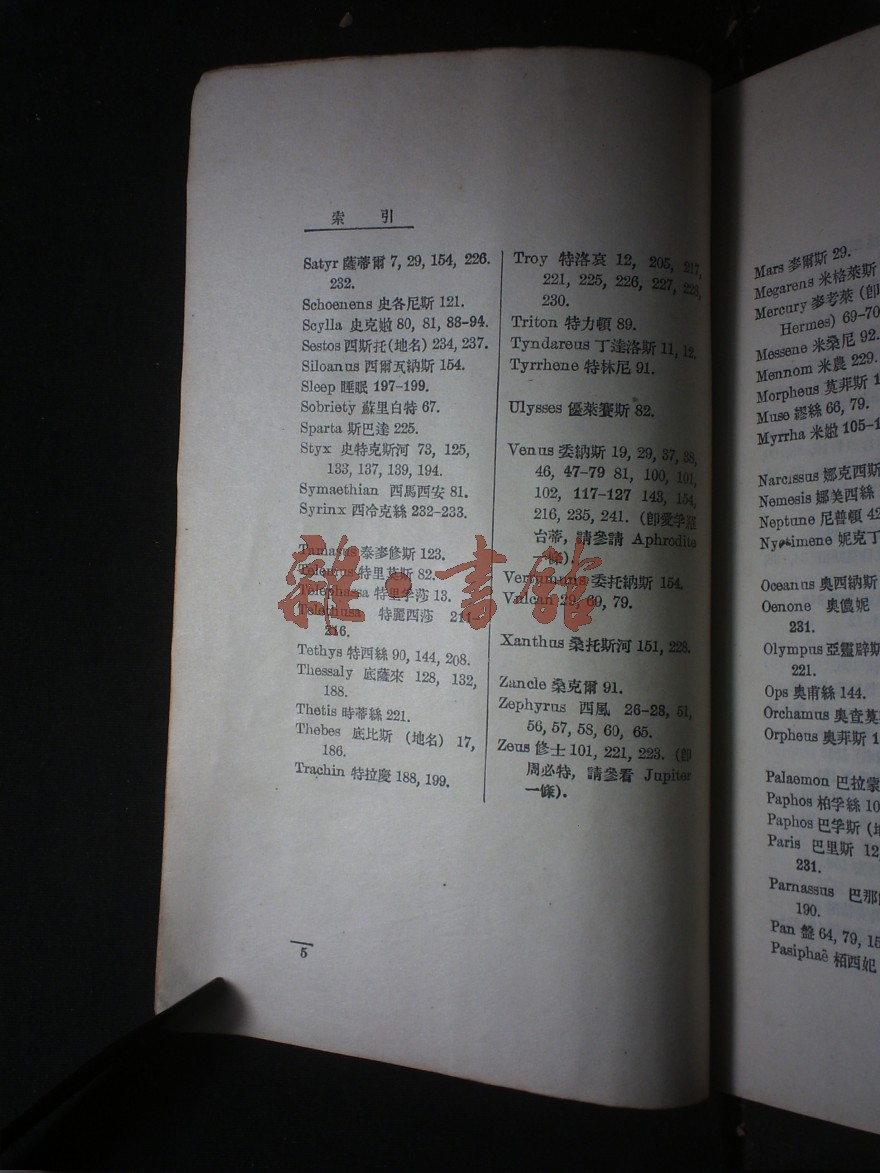 索 引
Satyr 薩蒂爾 7, 29, 154, 226.
232.
Schoenens 史各尼斯 121.
Scylla 史克娰 80, 81, 88-94.
Sestos 西斯托(地名) 234, 237.
Siloanus 西爾瓦納斯 154.
Sleep 睡眠 197-199.
Sobriety 蘇里白特 67.
Sparta 斯巴達 225.
Styx 史特克斯河 73, 125,
133, 137, 139, 194.
Symaethian 西馬西安 81.
Syrinx 西冷克絲 232-233.
Tamasus 泰麥修斯 123.
Telemus 特里莫斯 82.
Telephassa 特里孚莎 13.
Telethusa 特麗西莎 211-
216.
Tethys 特西絲 90, 144, 208.
Thessaly 底薩來 128, 132,
188.
Thetis 時蒂絲 221.
Thebes 底比斯 (地名) 17,
186.
Trachin 特拉慶 188, 199.
5
Troy 特洛哀 12, 205, 217,
221, 225, 226, 227, 228,
230.
Triton 特力頓 89.
Tyndareus 丁達洛斯 11, 12.
Tyrrhene 特林尼 91.
Ulysses 優萊賽斯 82.
Venus 委納斯 19, 29, 37, 38,
46, 47-79 81, 100, 101,
102, 117-127 143, 154,
216, 235, 241. (即愛孚羅
台蒂, 請參請 Aphrodite
一條).
Vertumnus 委托納斯 154.
Vulcan 29, 69, 79.
Xanthus 桑托斯河 151, 228.
Zancle 桑克爾 91.
Zephyrus 西風 26-28, 51,
56, 57, 58, 60, 65.
Zeus 修士 101, 221, 223. (即
周必特, 請參看 Jupiter
一條).
雜·書館
Mars 麥爾斯 29.
Megarens 米格萊斯
Mercury 麥考萊 (即
Hermes) 69-70
Messene 米桑尼 92.
Mennom 米農 229.
Morpheus 莫菲斯 1
Muse 繆絲 66, 79.
Myrrha 105-1
Narcissus 娜克西斯
Nemesis 娜美西絲
Neptune 尼普頓 42
Nyctimene 妮克丁
Oceanus 奧西納斯
Oenone 奧儂妮
231.
Olympus 亞靈辟斯
221.
Ops 奧甫絲 144.
Orchamus 奧查莫
Orpheus 奧菲斯 1
Palaemon 巴拉蒙
Paphos 柏孚絲 10
Paphos 巴孚斯 (地
Paris 巴里斯 12
231.
Parnassus 巴那
190.
Pan 盤 64, 79, 15
Pasiphaë 栢西妮